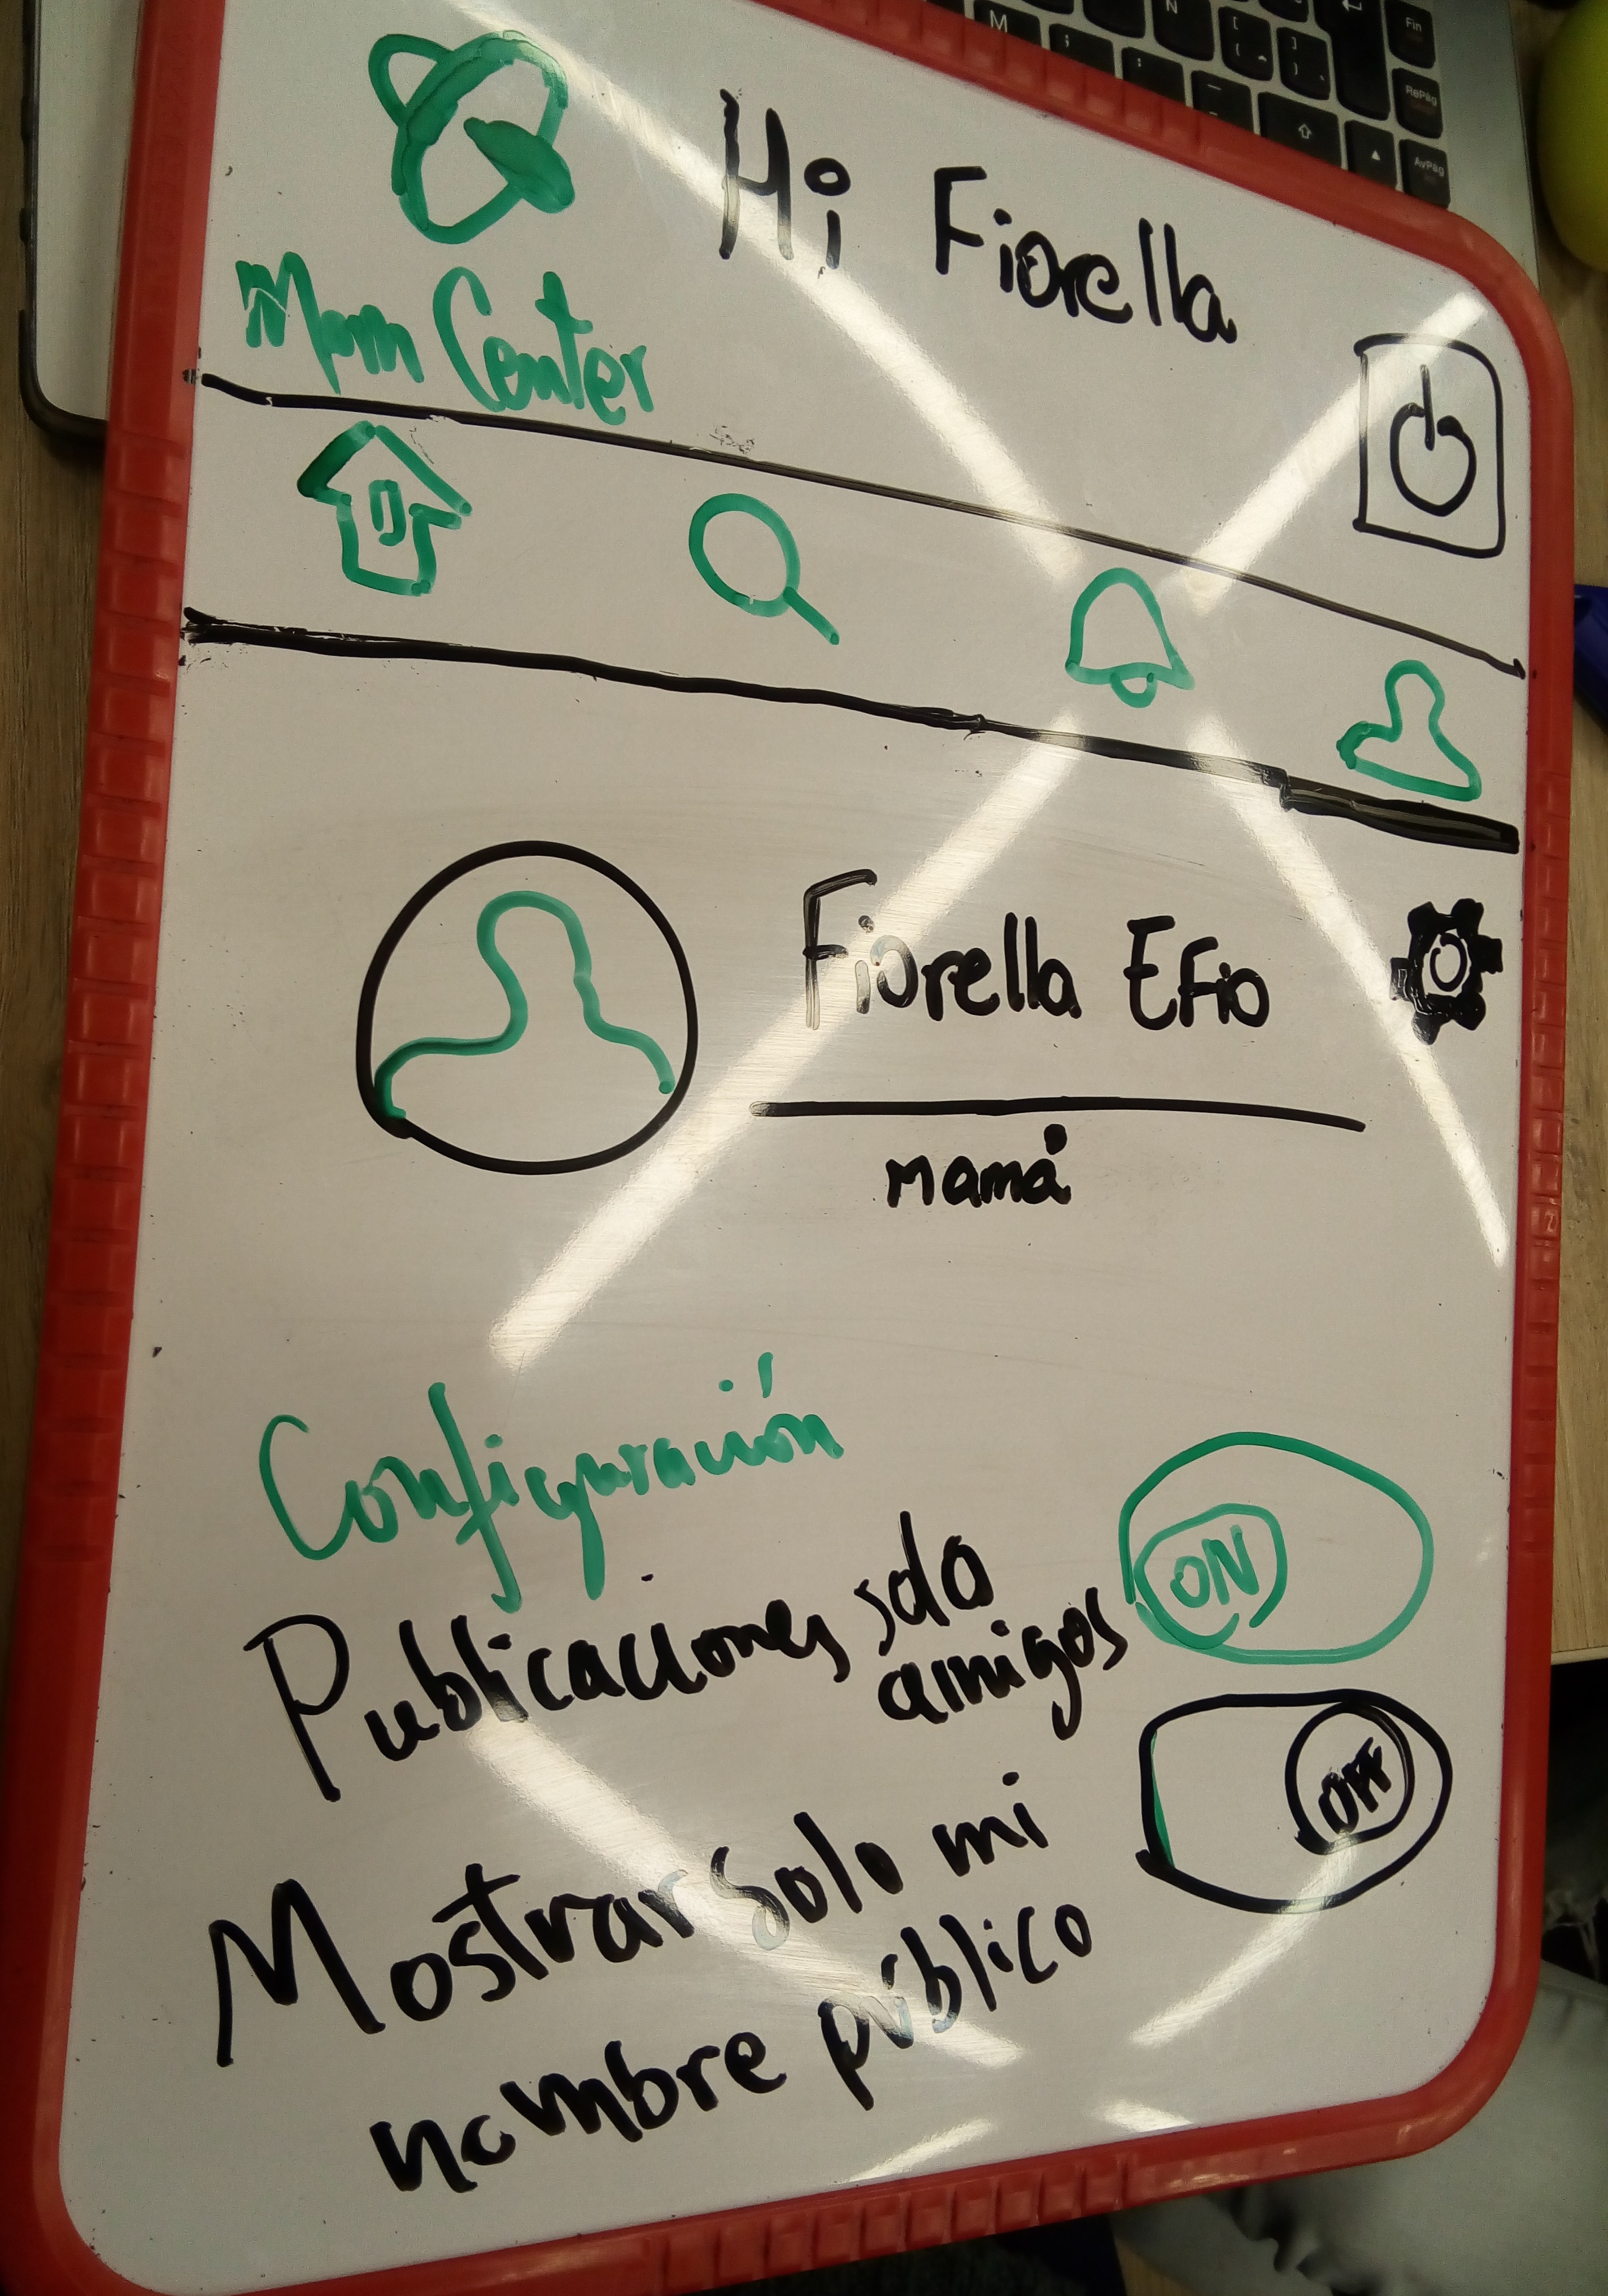 Hi Fiorella
Mom Center
Fiorella Efio
mamá
Configuración
Publicaciones solo
amigos
ON
OFF
Mostrar solo mi
nombre público
M
N
Fin
RePág
AvPág